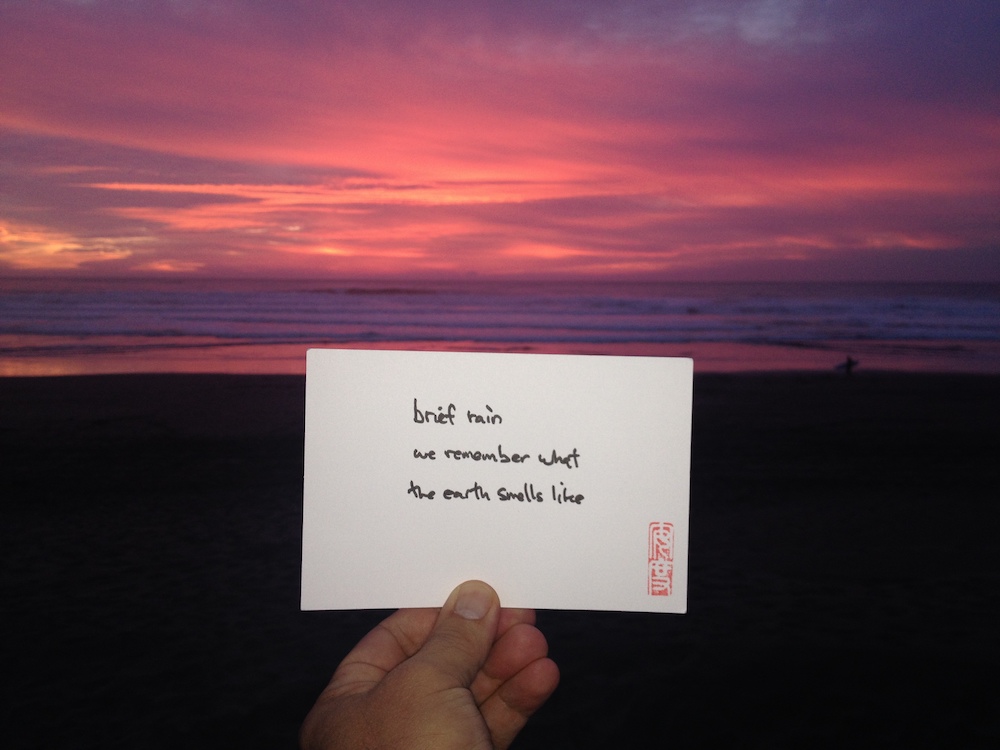 brief rain
we remember what
the earth smells like